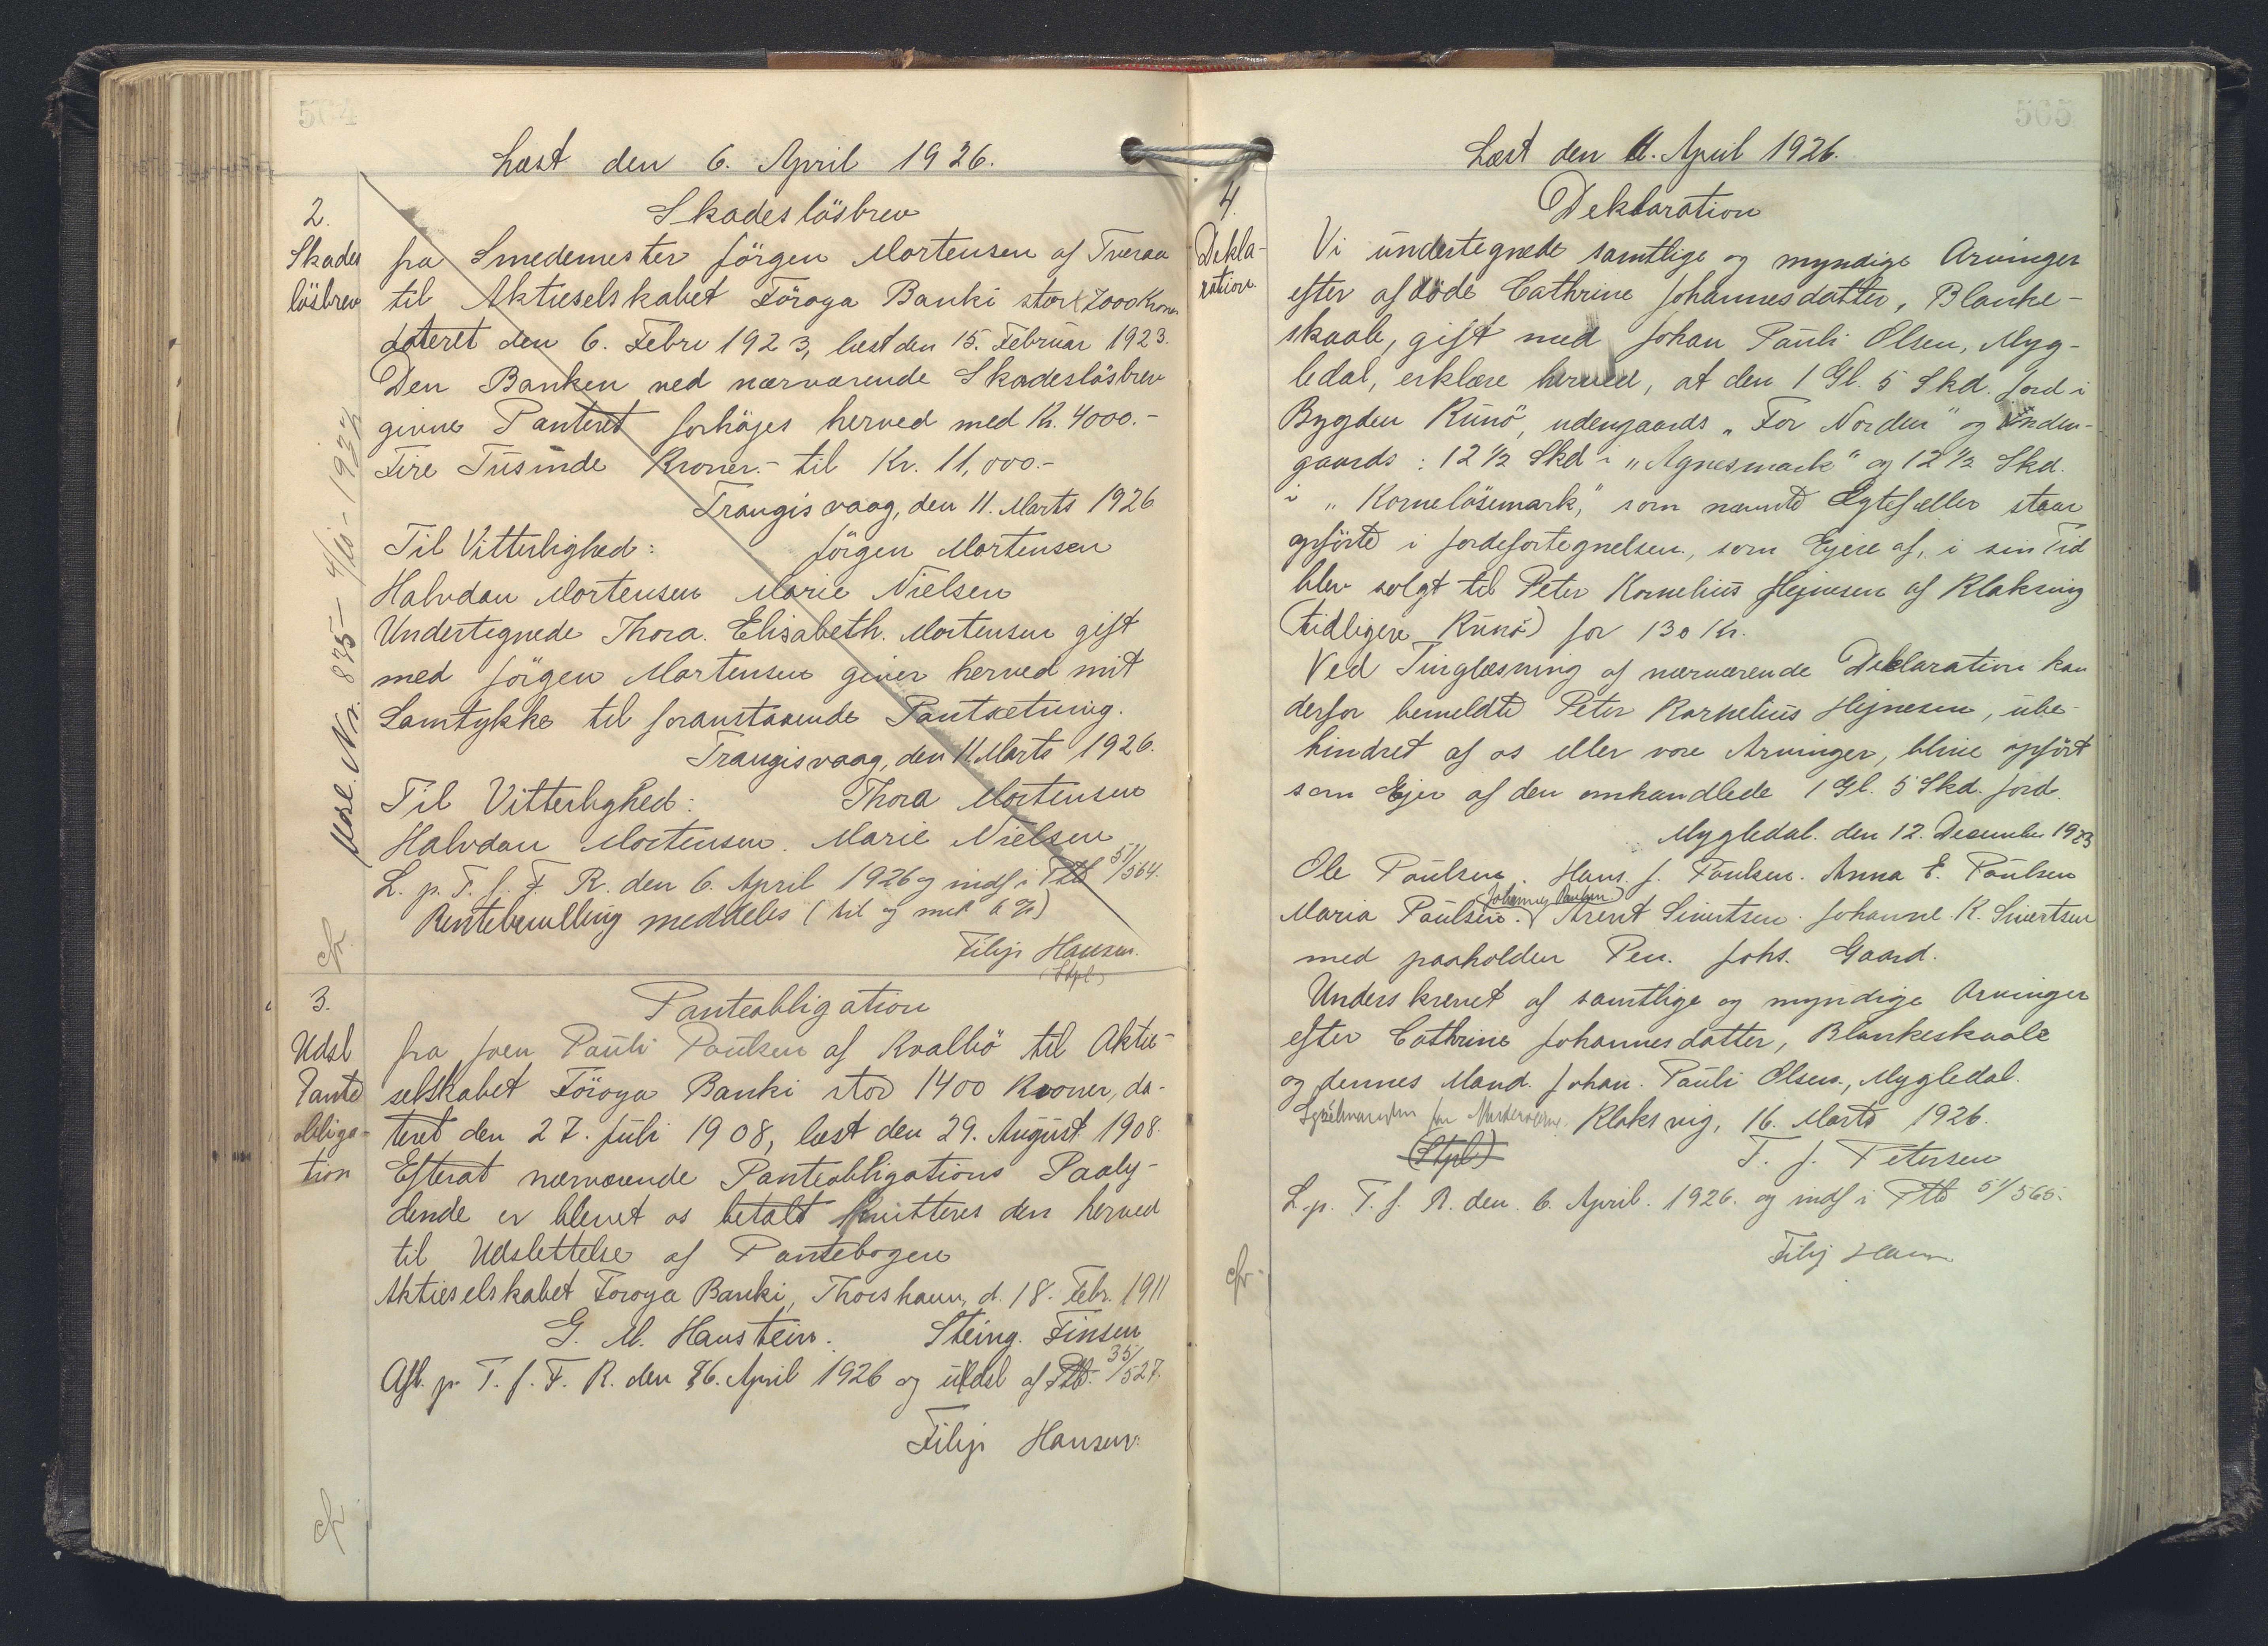 564
Læst den 6. April 1926.
2.
Skades
lösbrev
Skadeslösbrev
fra Smedemester Jörgen Mortensen af Tveraa
til Aktieselskabet Föroya Banki stor 7000 Kroner
dateret den 6. Febru 1923, læst den 15. Februar 1923.
Den Banken ved nærværende Skadeslösbrev
givne Panteret forhöjes herved med Kr. 4000.-
Fire Tusinde Kroner.- til Kr. 11,000.-
Trangisvaag, den 11. Marts 1926
Til Vitterlighed: Jörgen Mortensen
Halvdan Mortensen Marie Nielsen
Undertegnede Thora. Elisabeth. Mortensen gift
med Jörgen Mortensen giver herved mit
Samtykke til foranstaaende Pantsetning.
Trangisvaag, den 11. Marts 1926.
Til Vitterlighed: Thora Mortensen
Halvdan Mortensen. Marie Nielsen
L. p. T. f. F. R. den 6. April 1926 og indf i Ptb 51/564.
Rentebevilling meddeles (til og med 6 %)
Filip Hansen.
(Stpl)
Nr. 875 - 4/10 - 1927
cfr.
3.
Udsl
Pante
obliga-
tion
Panteobligation
fra Joen Pauli Poulsen af Kvalbö til Aktie-
selskabet Föroya Banki stor 1400 Kroner, da-
teret den 27. Juli 1908, læst den 29. August 1908.
Efterat nærværende Panteobligations Paaly-
dende er blevet os betalt kvitteres den herved
til Udslettelse af Pantebogen
Aktieselskabet Foroya Banki, Thorshavn, d. 18. Febr. 1911
G. M. Haustein. Steing. Finsen
Afl. p. T. f. F. R. den 6. April 1926 og udsl af Ptb. 35/527.
Filip Hansen.
cfr.
565
Læst den 6. April 1926.
4.
Dekla-
ration
Deklaration
Vi undertegnede samtlige og myndige Arvinger
efter afdöde Cathrine Johannesdatter, Blanke-
skaale, gift med Johan Pauli Olsen, Myg-
ledal, erklære herved, at den 1 Gl. 5 Skd. Jord i
Bygden Kunö, udengaards "For Norden" og inden-
gaards: 12 1/2 Skd i "Agnesmark" og 12 1/2 Skd.
i "Kornelösemark," som nævnte Egtefæller staar
opförte i Jordefortegnelsen, som Ejere af, i sin Tid
blev solgt til Peter Kornelius Hejnesen af Klaksvig
(tidligere Kunö) for 130 Kr.
Ved Tinglæsning af nærværende Deklaration kan
derfor bemeldte Peter Kornelius Hejnesen, ube-
hindret af os eller vore Arvinger, blive opfört
som Ejer af den omhandlede 1 Gl. 5 Skd. Jord.
Mygledal. den 12. December 1923
Ole Poulsen. Hans. J. Poulsen. Anna E. Poulsen
Johannes Poulsen
Maria Poulsen. Arent Sivertsen. Johanne. K. Sivertsen
med paaholden Pen. Johs. Gaard.
Underskrevet af samtlige og myndige Arvinger
efter Cathrine Johannesdatter, Blankeskaale
og dennes Mand. Johan. Pauli Olsen, Mygledal.
Sysselmanden for Norderöerne. Klaksvig, 16. Marts 1926.
(Stpl) T. J. Petersen
L. p. T. f. R. den 6. April. 1926. og indf i Ptb 51/565.
Filip Hansen
cfr.